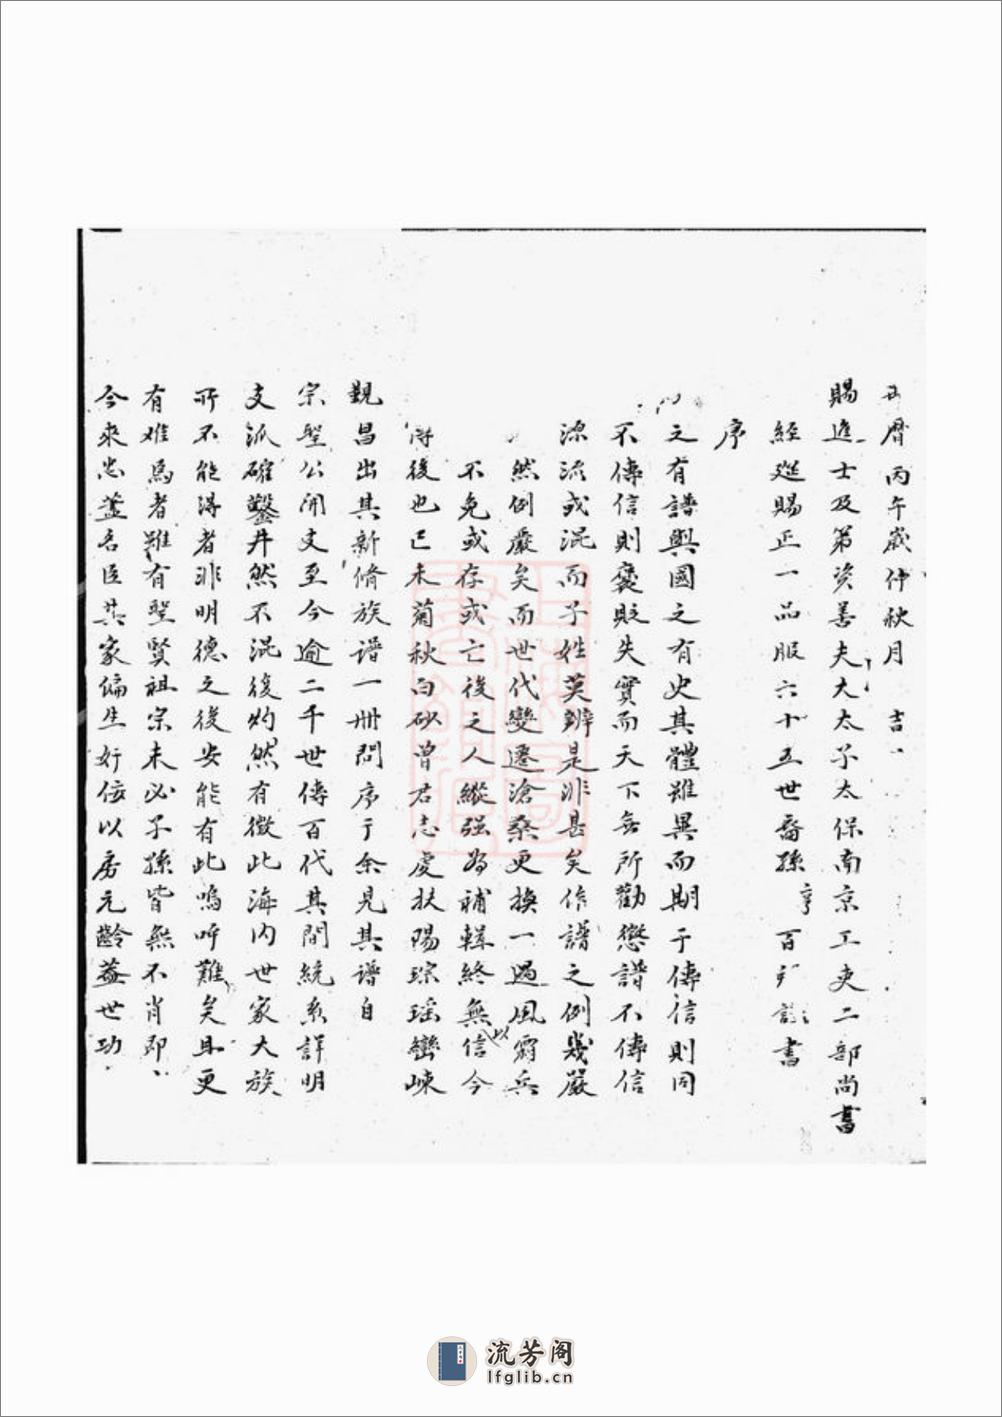 曆丙午歲仲秋月 吉
賜進士及第資善夫大太子太保南京工吏二部尚書
經筵賜正一品服六十五世裔孫亨百 書
序
之有譜與國之有史其體雖異而期于傳信則同
不傳信則褒貶失實而天下無所勸懲譜不傳信
源流或混而子姓莫辨是非甚矣作譜之例幾嚴
然例嚴矣而世代變遷滄桑更換一過風霜兵
不免或存或亡後之人縱强為補輯終無以信今
後也己未菊秋白砂曾君志虔扶陽琮瑶巒崍
觐昌出其新脩族譜一冊問序于余見其譜自
宗聖公開支至今逾二千世傳百代其間統系詳明
支派確鑿井然不混後灼然有徵此海内世家大族
所不能得者非明德之後安能有此嗚呼難矣且更
有难為者雖有聖賢祖宗未必子孫皆無不肖即
今來忠藎名臣其家偏生奸佞以房元齡蓋世功
流芳阁
lfglib.cn